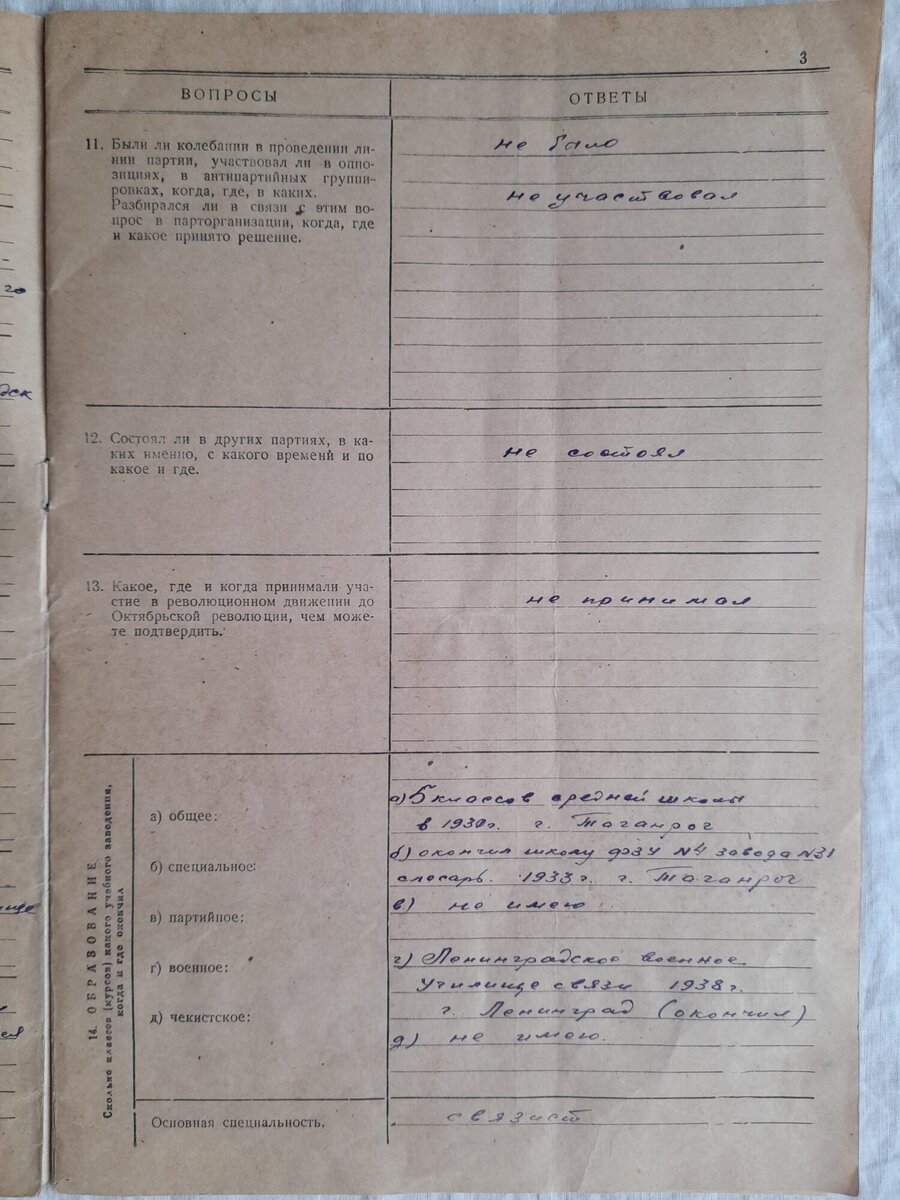 3
ВОПРОСЫ
ОТВЕТЫ
11. Были ли колебании в проведении ли-
нии партии, участвовал ли в оппо-
зициях, в антипартийных группи-
ровках, когда, где, в каких.
Разбирался ли в связи с этим во-
прос в парторганизации, когда, где
и какое принято решение.
не было
не участвовал
12. Состоял ли в других партиях, в ка-
ких именно, с какого времени и по
какое и где.
не состоял
13. Какое, где и когда принимали уча-
стие в революционном движении до
Октябрьской революции, чем може-
те подтвердить.
не принимал
14. ОБРАЗОВАНИЕ
Сколько классов (курсов) какого учебного заведения,
когда и где окончил
а) общее:
б) специальное:
в) партийное:
г) военное:
д) чекистское:
а) 5 классов средней школы
в 1930г. г. Таганрог
б) окончил школу ФЗУ №4 завода №31
слесарь. 1933г. г. Таганрог
в) не имею
г) Ленинградское военное
Училище связи 1938г.
г. Ленинград (окончил)
д) не имею.
Основная специальность.
связист
го
дск
ище
ся